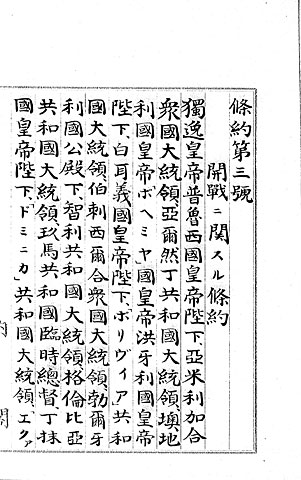 條約第三號
開戰ニ關スル條約
獨逸皇帝普魯西國皇帝陛下、亞米利加合
衆國大統領、亞爾然丁共和國大統領、墺地
利國皇帝「ボヘミヤ」國皇帝洪牙利國皇帝
陛下、白耳義國皇帝陛下、「ボリヴィア」共和
國大統領、伯剌西爾合衆國大統領、勃爾牙
利國公殿下、智利共和國大統領、格倫比亞
共和國大統領、玖馬共和國臨時總督、丁抹
國皇帝陛下、「ドミニカ」共和國大統領、「エクァ
內閣